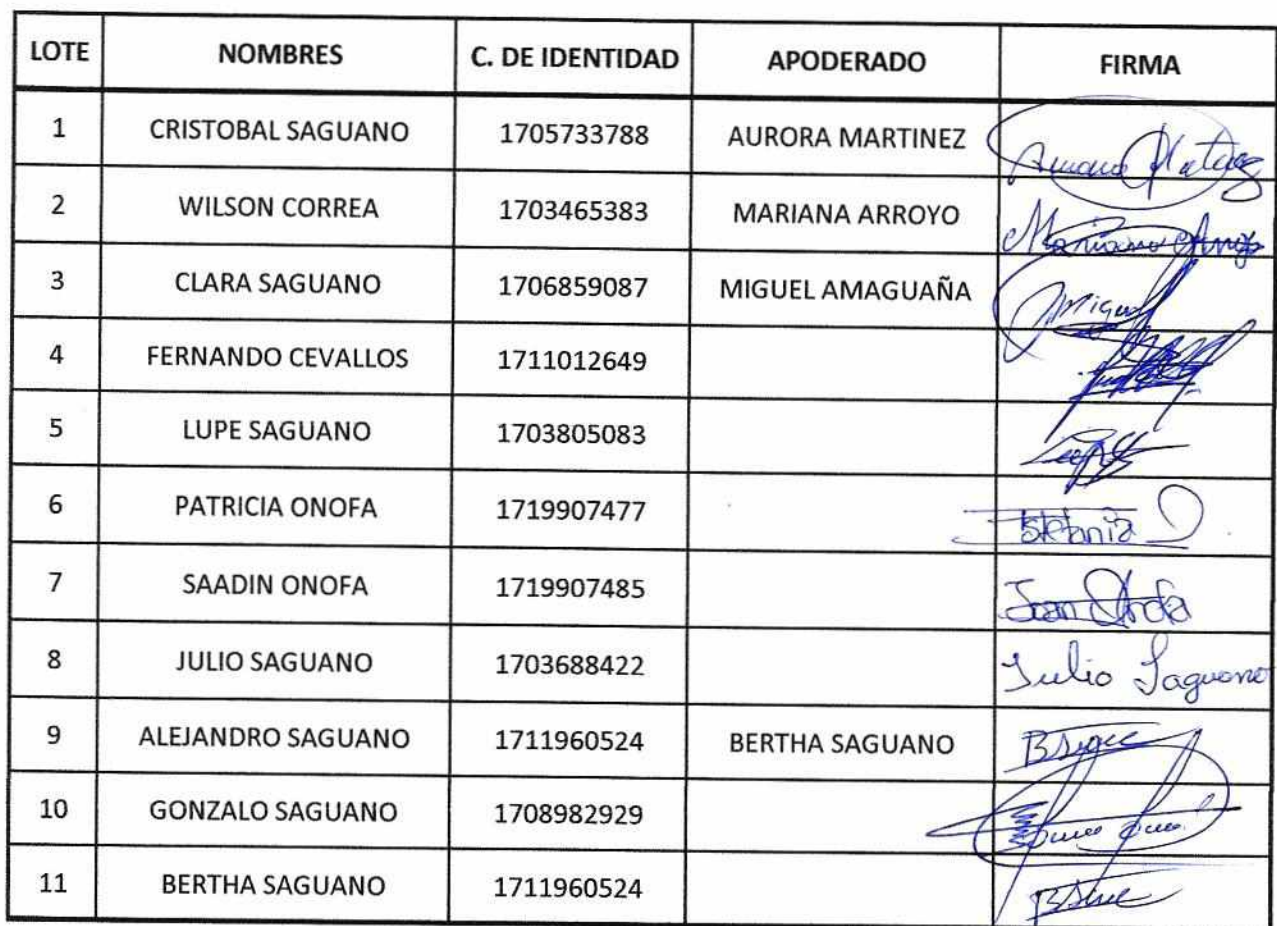 LOTE NOMBRES C. DE IDENTIDAD APODERADO FIRMA
1 CRISTOBAL SAGUANO 1705733788 AURORA MARTINEZ
2 WILSON CORREA 1703465383 MARIANA ARROYO Mariana
3 CLARA SAGUANO 1706859087 MIGUEL AMAGUAÑA Miguel
4 FERNANDO CEVALLOS 1711012649
5 LUPE SAGUANO 1703805083
6 PATRICIA ONOFA 1719907477 Estefania
7 SAADIN ONOFA 1719907485 Joan Onofa
8 JULIO SAGUANO 1703688422 Julio Saguano
9 ALEJANDRO SAGUANO 1711960524 BERTHA SAGUANO
10 GONZALO SAGUANO 1708982929
11 BERTHA SAGUANO 1711960524